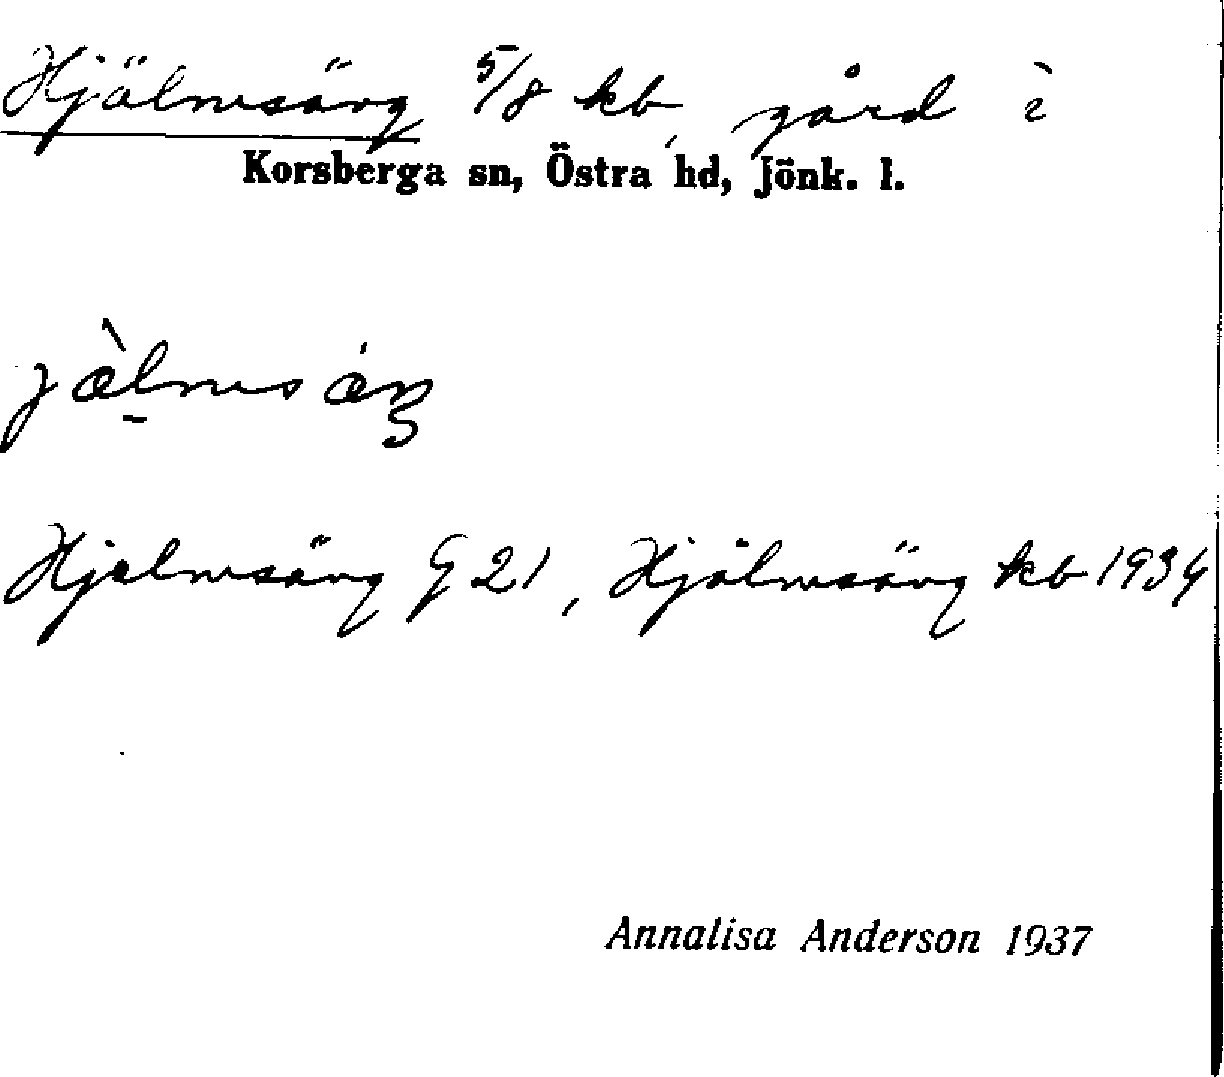 Hjälmsäng 5/8 kb, gård i
Korsberga sn, Östra hd, Jönk. l.
jàlmsáŋ
Hjelmsäng G 21, Hjälmsäng kb 1934
Annalisa Anderson 1937